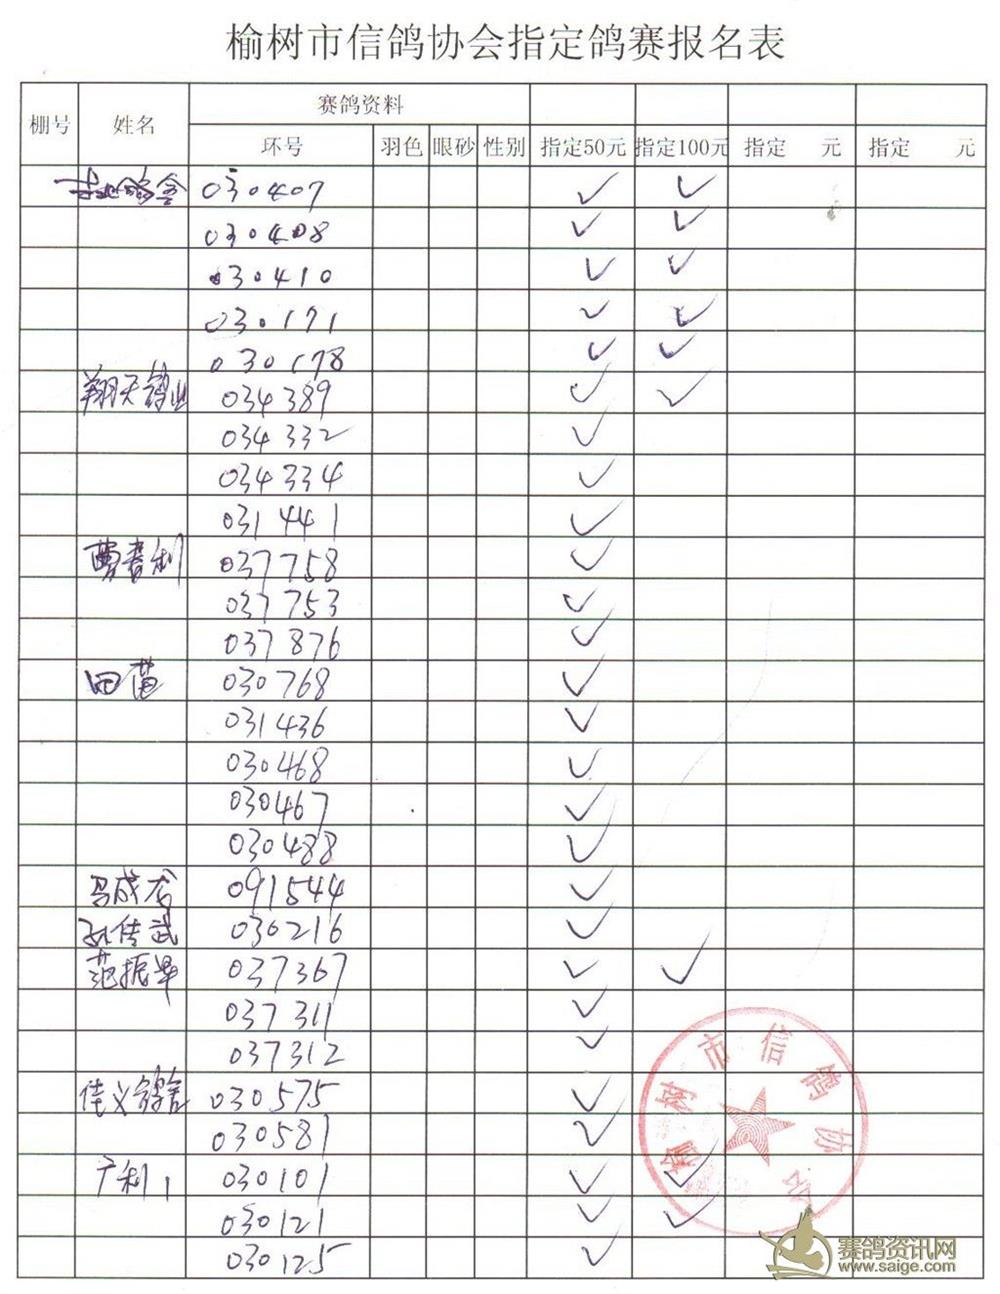 榆树市信鸽协会指定鸽赛报名表
赛鸽资料
棚号 姓名 环号 羽色 眼砂 性别 指定50元 指定100元 指定 元 指定 元
鸽舍 030407 ✓ ✓
030408 ✓ ✓
030410 ✓ ✓
030171 ✓ ✓
030178 ✓ ✓
翔天鸽业 034389 ✓ ✓
034332 ✓
034334 ✓
031441 ✓
曹春利 037758 ✓
037753 ✓
037876 ✓
田苗 030768 ✓
031436 ✓
030468 ✓
030467 ✓
030488 ✓
马成龙 091544 ✓
孙传武 030216 ✓
范振举 037367 ✓ ✓
037311 ✓
037312 ✓
佳义鸽舍 030575 ✓
030581 ✓
广利 030101 ✓ ✓
030121 ✓ ✓
030125 ✓
榆树市信鸽协会
赛鸽资讯网
www.saige.com